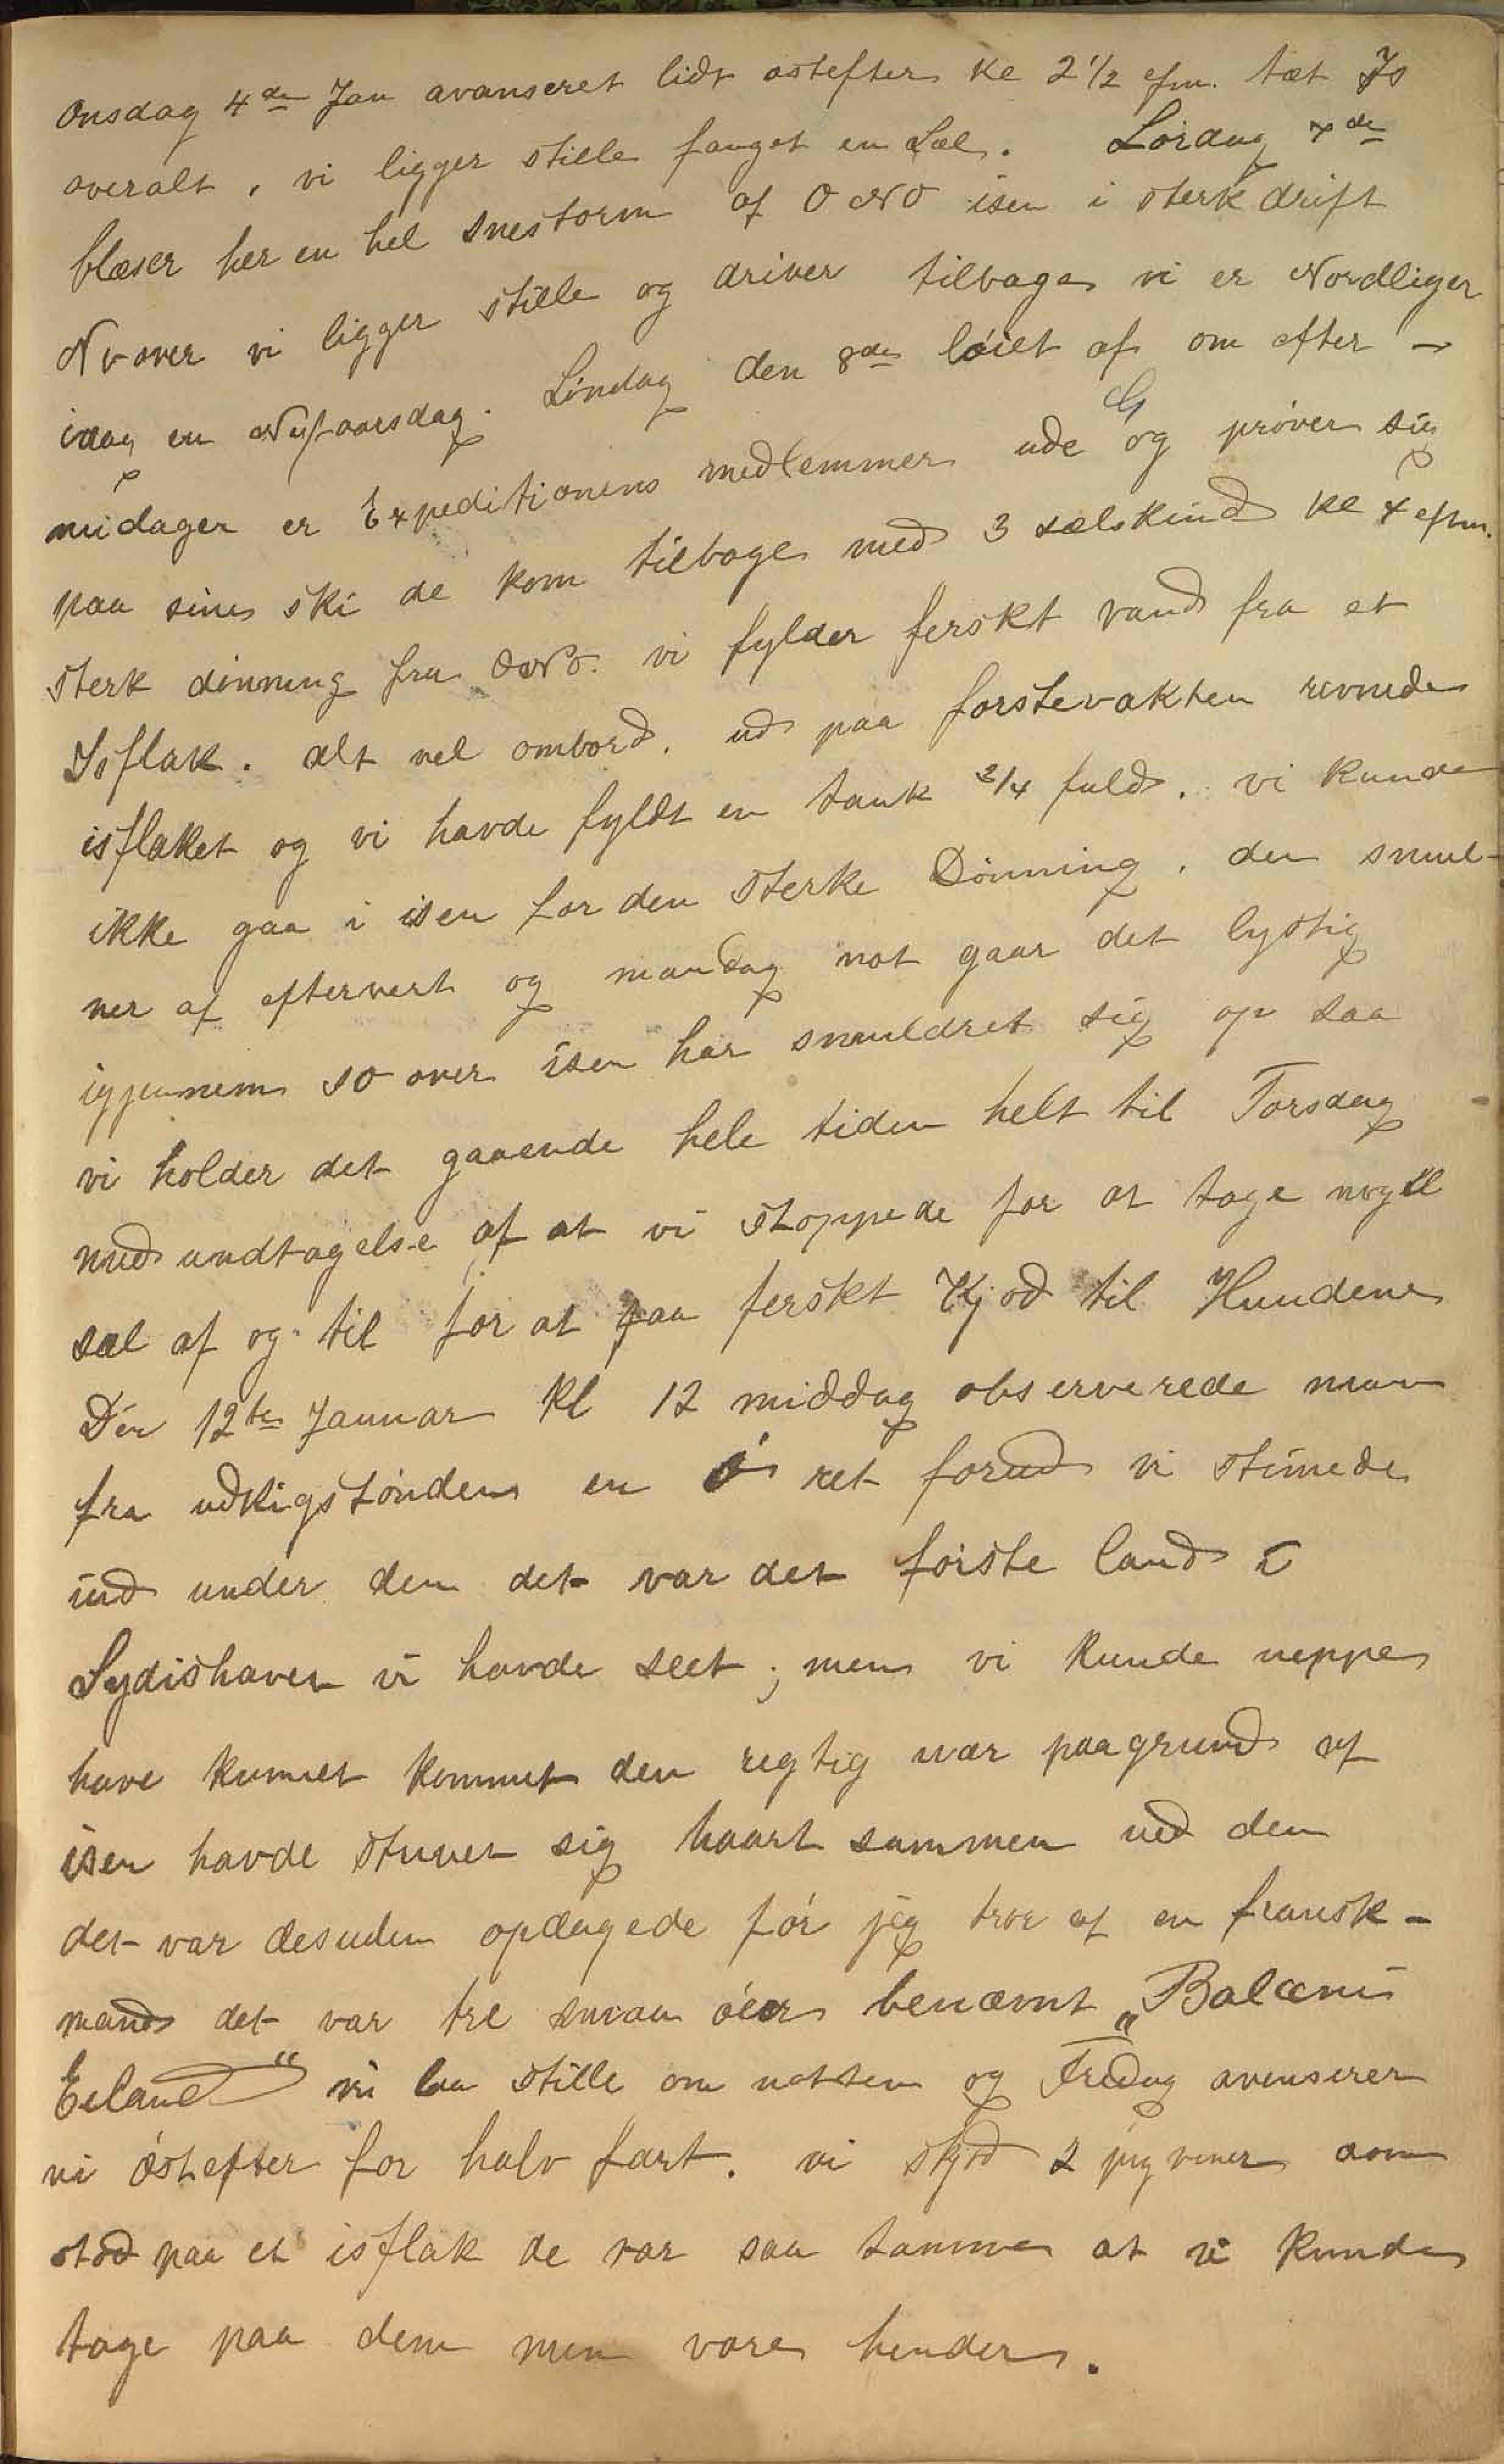 Onsdag 4de Jan avanseret lidt ostefter kl 2 1/2 efm. tæt Is
overalt, vi ligger stille fanget en Sæl. Lørdag 7de
blæser her en hel snestorm af O NO isen i sterk drift
Nv over vi ligger stille og driver tilbage vi er Nordliger
idag en Nytaarsdag. Søndag den 8de løiet af om efter-
midagen er Expeditionens medlemmer ude og prøver sig
paa sine ski de kom tilbage med 3 sælskind kl 7 efm.
sterk dønning fra ONO. vi fylder ferskt vand fra et
Isflak. alt vel ombord. ud paa forstevakten revnede
isflaket og vi havde fyldt en tank 3/4 fuld. vi kunde
ikke gaa i isen for den sterke Dønning. den smul-
ner af eftervert og mandag nat gaar det lystig
igjennem SO over isen har smuldret sig op saa
vi holder det gaaende hele tiden helt til Torsdag
med undtagelse af at vi stoppede for at tage nogel
sæl af og til for at faa ferskt Kjød til Hundene
Den 12te Januar Kl 12 middag observerede man
fra udkigstønden en Ø ret forud vi stimede
ind under den det var det første land i
Sydishaven vi havde seet; men vi kunde neppe
have kunnet kommet den regtig nær paagrund af
isen havde stuvet sig haart sammen ved den
det var desuden opdagede før jeg tror af en fransk-
mand det var tre smaa øer benævnt „Balæni
Eiland“ vi laa stille om natten og Fredag avenserer
vi østefter for halv fart. vi skjød 2 pigviner som
stod paa et isflak de var saa tamme at vi kunde
tage paa dem men vore hender.